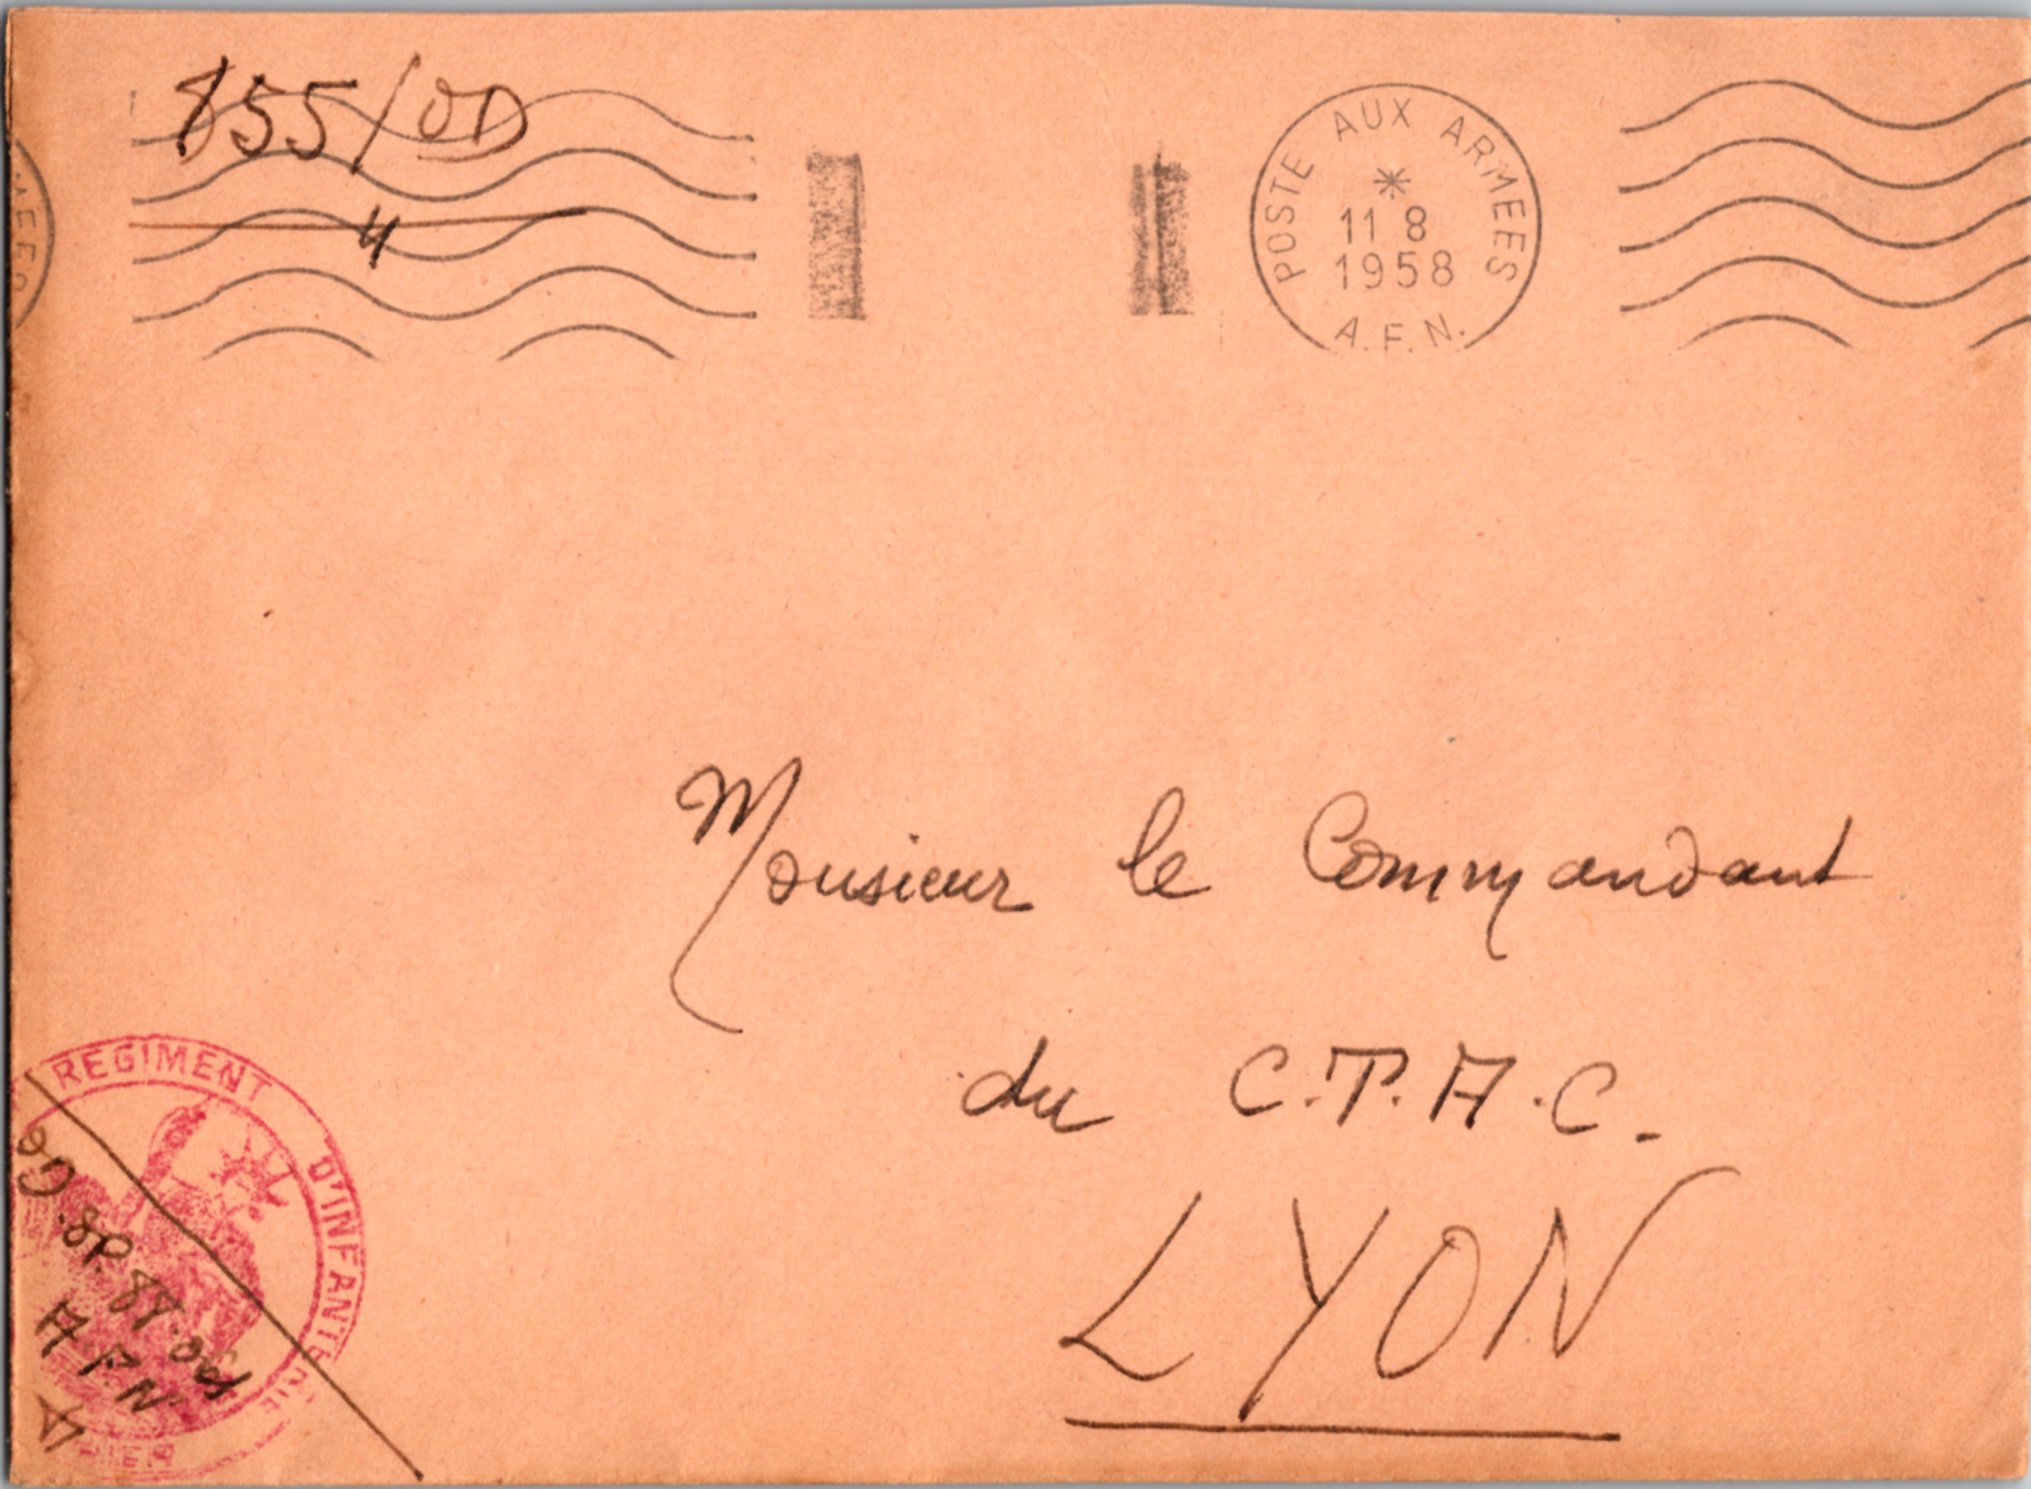 855/OD
4
POSTE AUX ARMEES
11 8
1958
A.F.N.
Monsieur le Commandant
du C.T.A.C.
LYON
REGIMENT D'INFANTERIE
A.F.N.